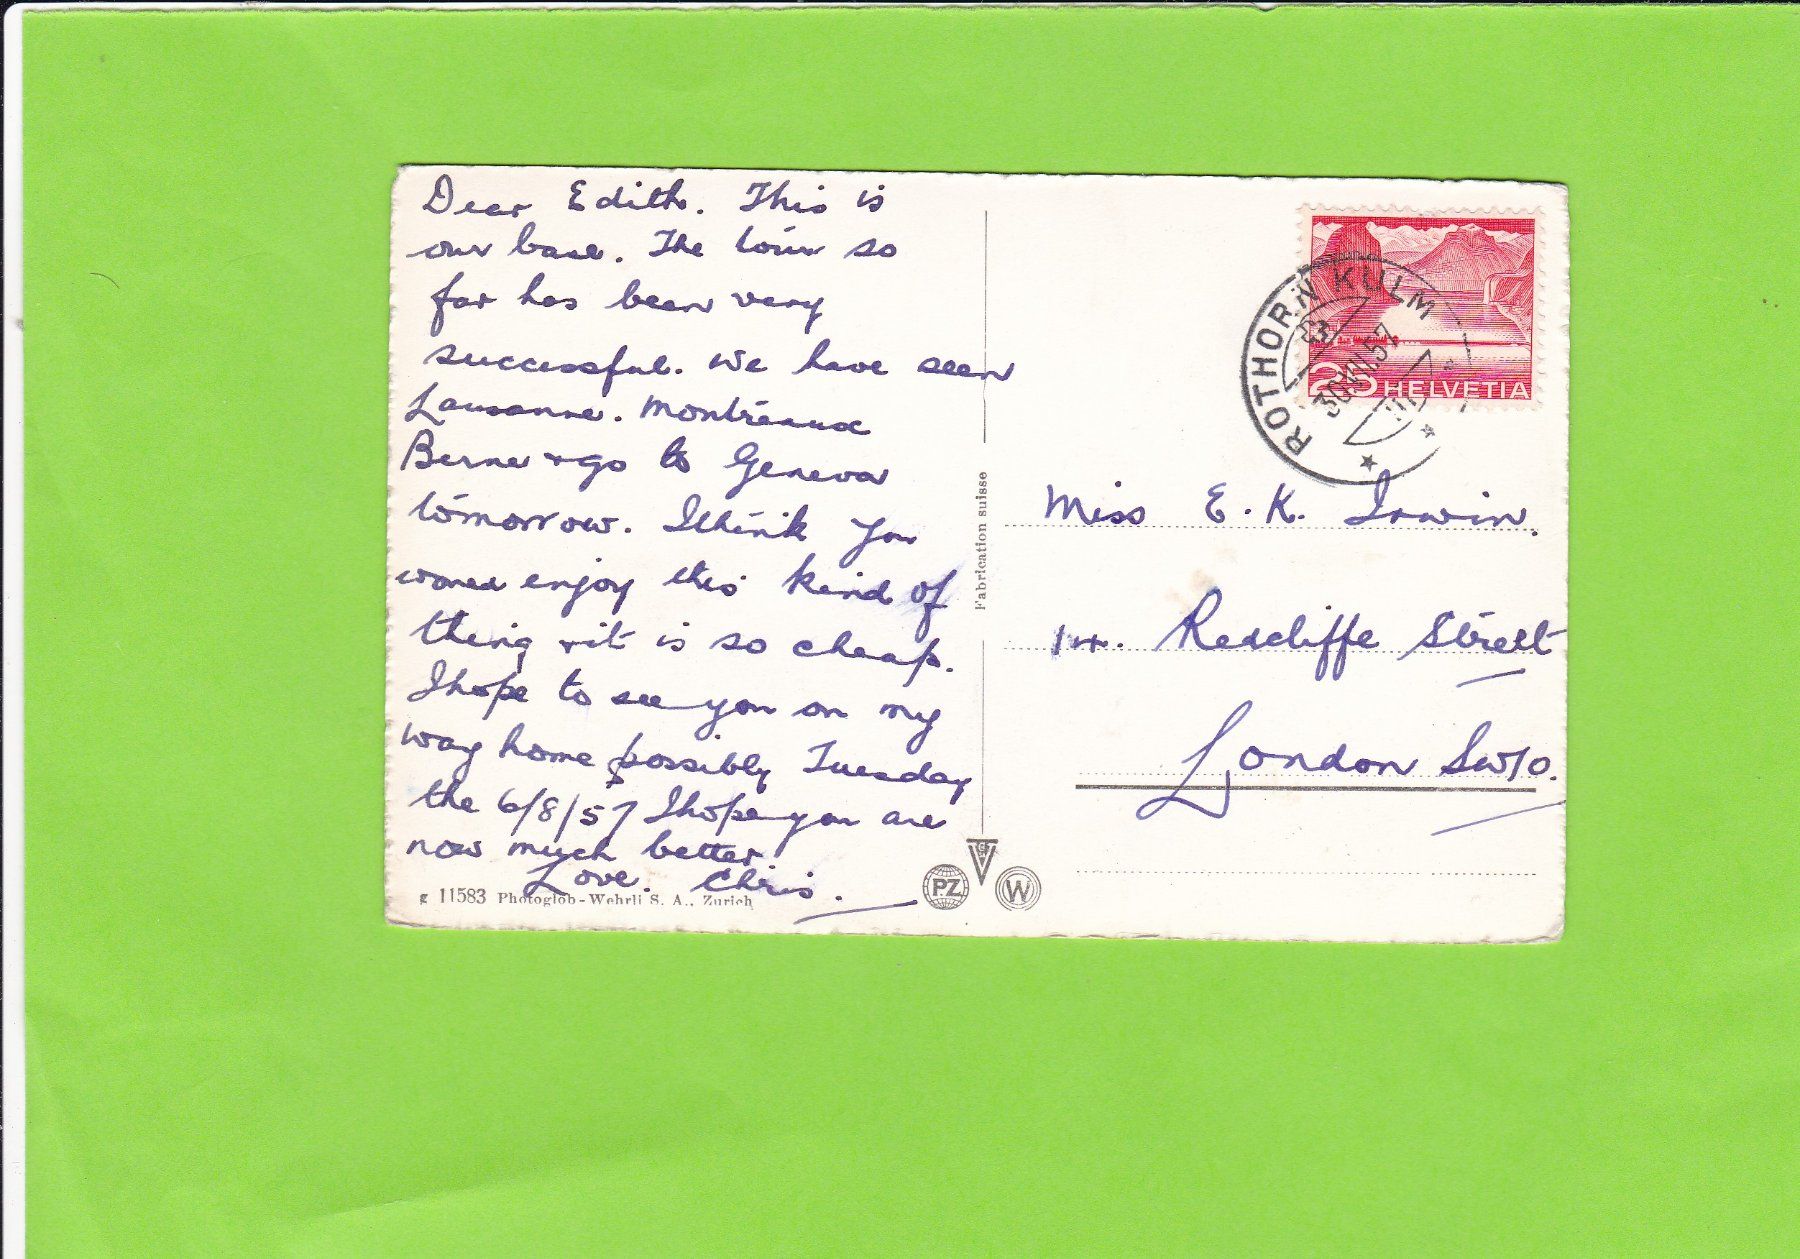 Dear Edith. This is
our base. The tour so
far has been very
successful. We have seen
Lausanne. Montreaux
Berne + go to Geneva
tomorrow. I think you
would enjoy this kind of
thing + it is so cheap.
I hope to see you on my
way home possibly Tuesday
the 6/8/57 I hope you are
now much better.
Love. Chris.
g 11583 Photoglob-Wehrli S. A., Zurich
Fabrication suisse
PZ
W
ROTHORN KULM
30.VII.57
25 HELVETIA
Miss E. K. Irwin.
14. Redcliffe Street
London SW10.